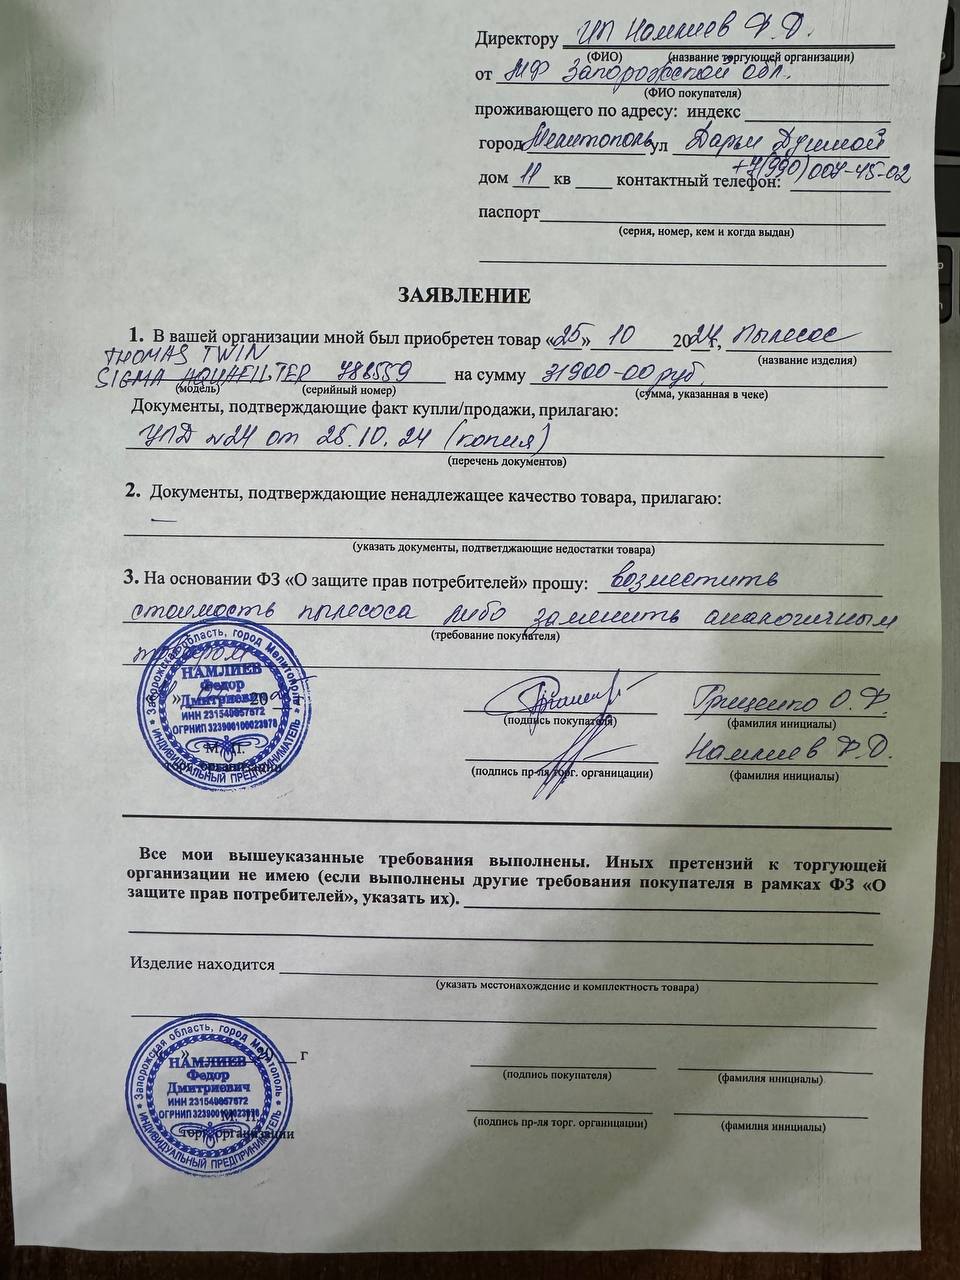 Директору ИП Намлиев Ф.Д.
(ФИО) (название торгующей организации)
от МФ Запорожской обл.
(ФИО покупателя)
проживающего по адресу: индекс
город Мелитополь ул Дарьи Дугиной
дом 11 кв контактный телефон: +7(990)007-45-02
паспорт
(серия, номер, кем и когда выдан)
ЗАЯВЛЕНИЕ
1. В вашей организации мной был приобретен товар «25» 10 2024 г, пылесос
(название изделия)
THOMAS TWIN
SIGMA AQUAFILTER 788559 на сумму 31900-00 руб.
(модель) (серийный номер) (сумма, указанная в чеке)
Документы, подтверждающие факт купли/продажи, прилагаю:
УПД №24 от 25.10.24 (копия)
(перечень документов)
2. Документы, подтверждающие ненадлежащее качество товара, прилагаю:
—
(указать документы, подтветджающие недостатки товара)
3. На основании ФЗ «О защите прав потребителей» прошу: возместить
стоимость пылесоса либо заменить аналогичным
(требование покупателя)
товаром
Запорожская область, город Мелитополь
НАМЛИЕВ
Федор
Дмитриевич
» 20
ИНН 231540957672
ОГРНИП 323900100023978
ИНДИВИДУАЛЬНЫЙ ПРЕДПРИНИМАТЕЛЬ
М. П.
торг. организации
Грищенко О.Ф.
(подпись покупателя) (фамилия инициалы)
Намлиев Ф.Д.
(подпись пр-ля торг. органицации) (фамилия инициалы)
Все мои вышеуказанные требования выполнены. Иных претензий к торгующей
организации не имею (если выполнены другие требования покупателя в рамках ФЗ «О
защите прав потребителей», указать их).
Изделие находится
(указать местонахождение и комплектность товара)
» г
Запорожская область, город Мелитополь
НАМЛИЕВ
Федор
Дмитриевич
ИНН 231540957672
ОГРНИП 323900100023978
ИНДИВИДУАЛЬНЫЙ ПРЕДПРИНИМАТЕЛЬ
М. П.
торг. организации
(подпись покупателя) (фамилия инициалы)
(подпись пр-ля торг. органицации) (фамилия инициалы)